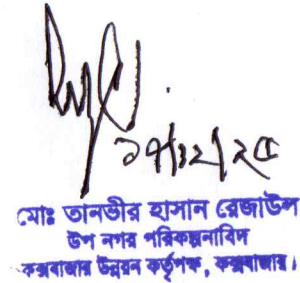 মোঃ তানভীর হাসান রেজাউল
উপ নগর পরিকল্পনাবিদ
কক্সবাজার উন্নয়ন কর্তৃপক্ষ, কক্সবাজার।